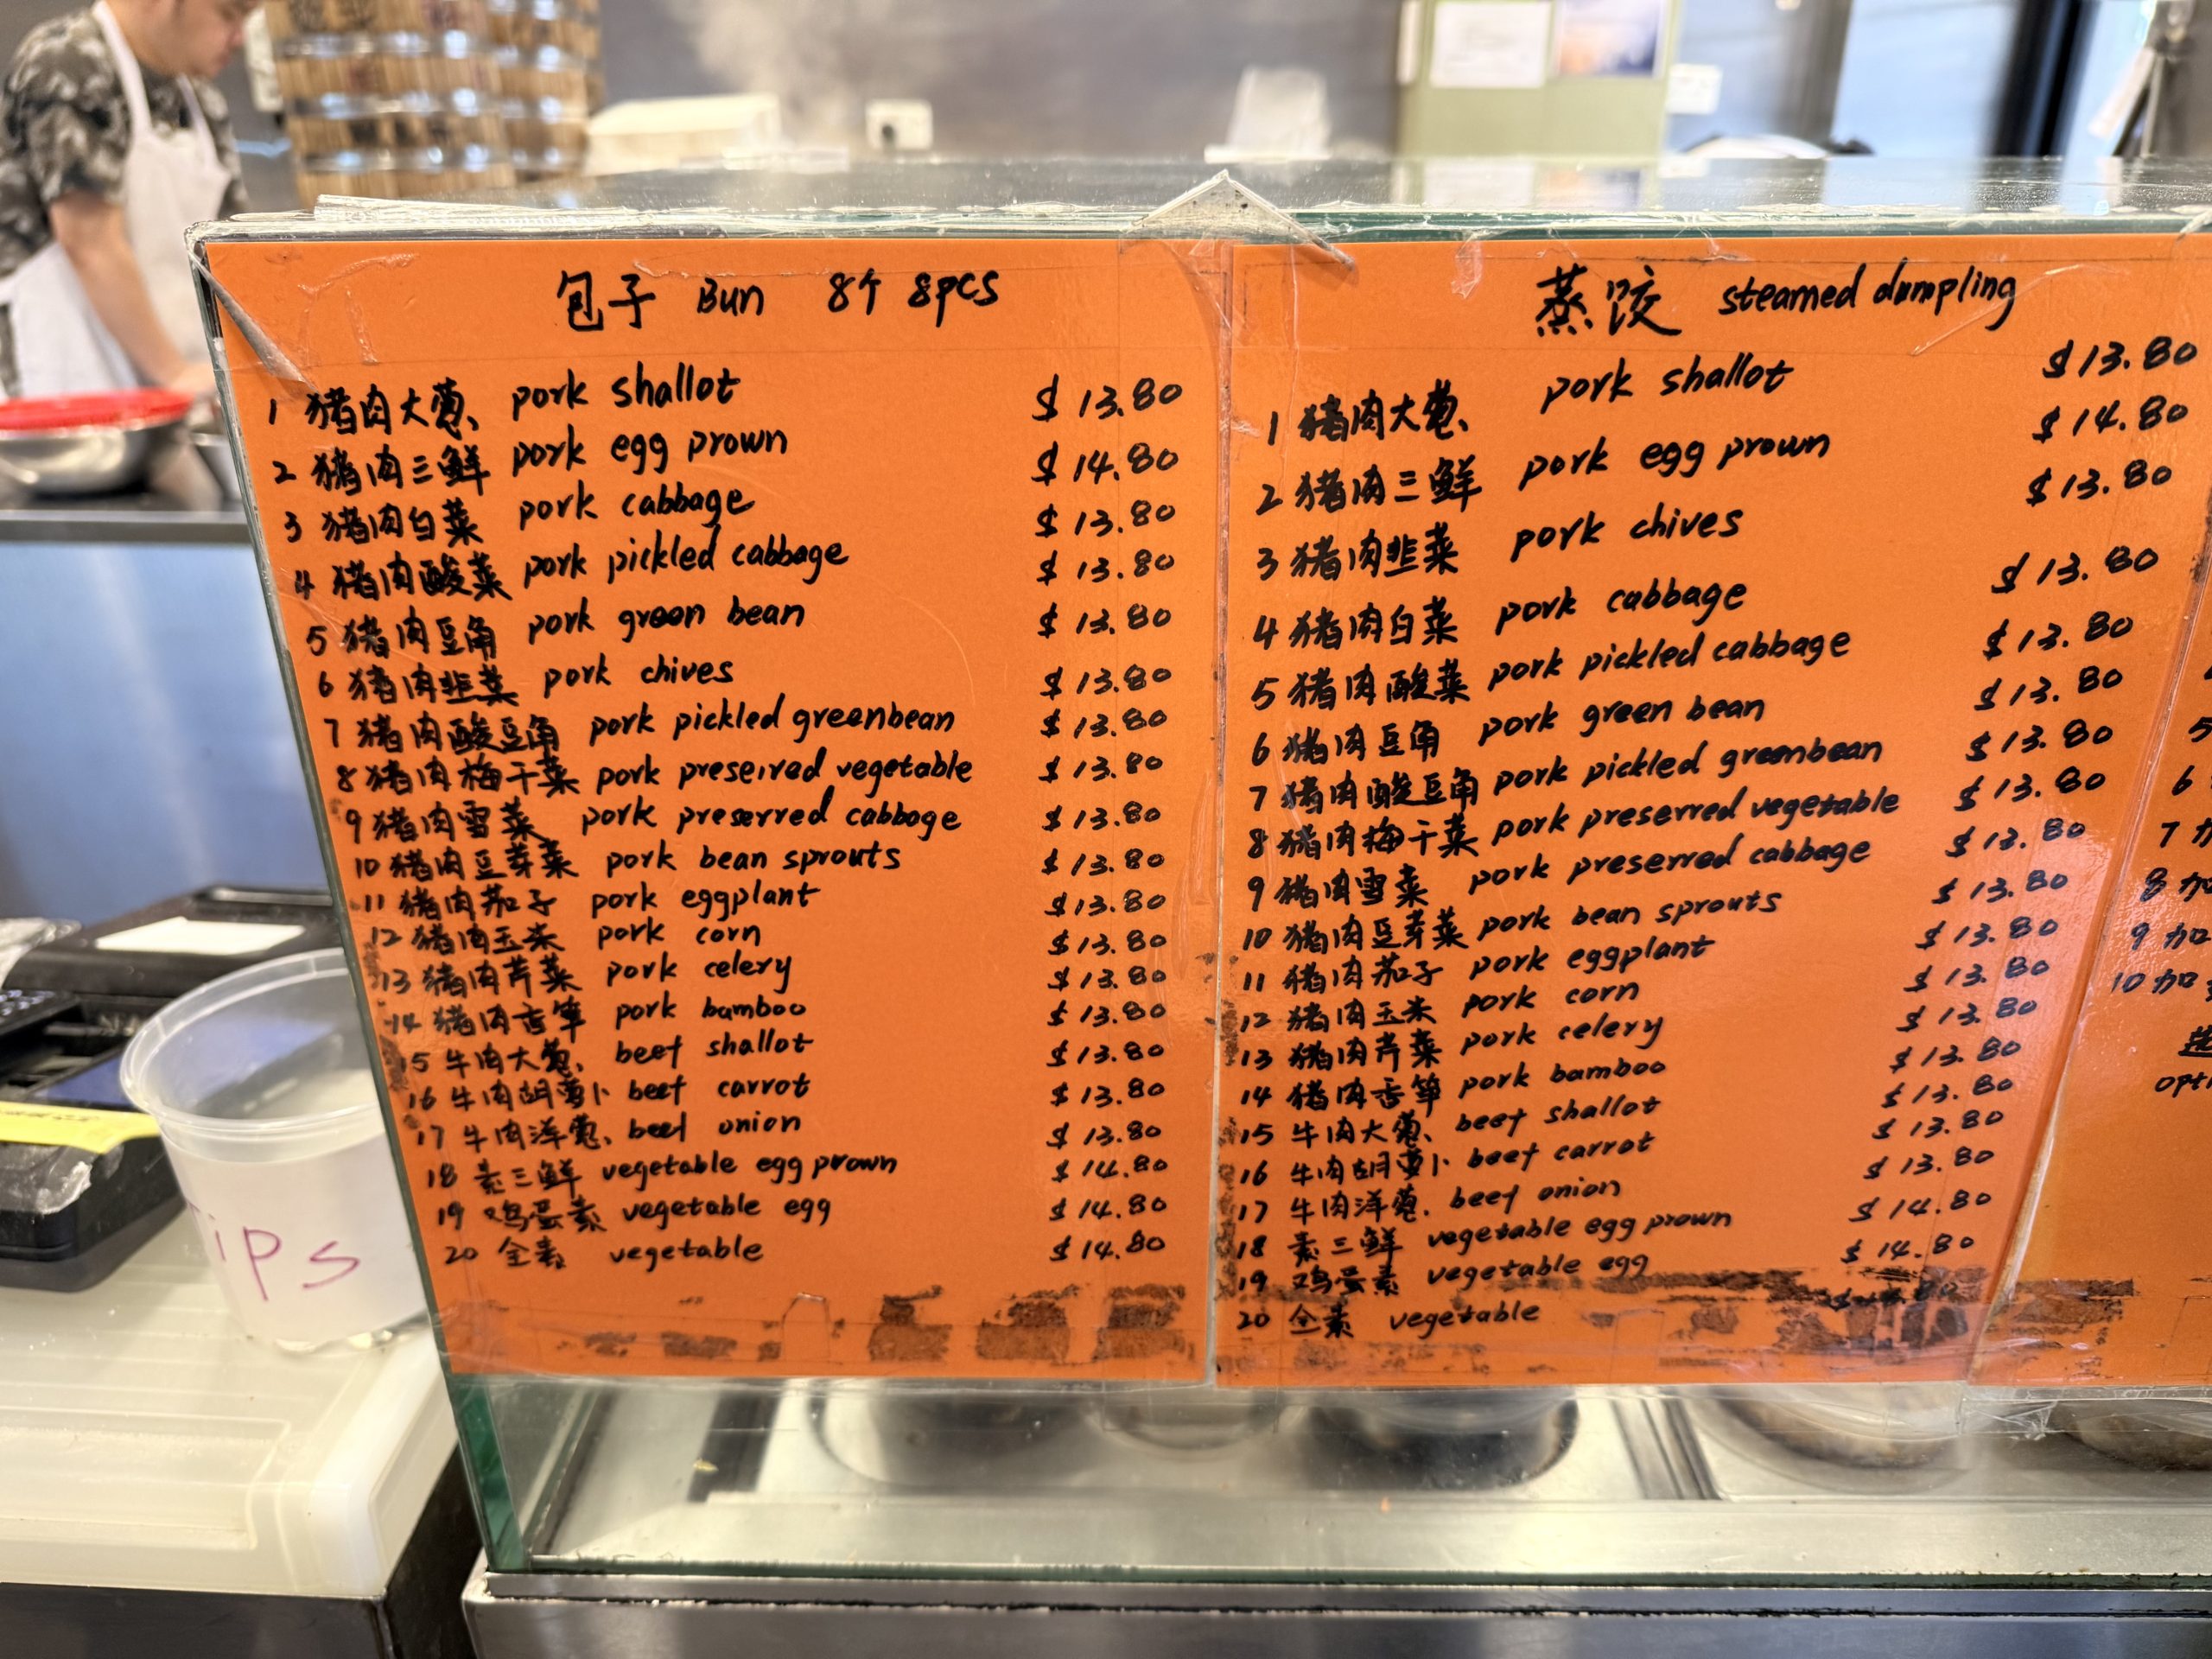 包子 Bun 8个 8pcs
1 猪肉大葱、 pork shallot $13.80
2 猪肉三鲜 pork egg prown $14.80
3 猪肉白菜 pork cabbage $13.80
4 猪肉酸菜 pork pickled cabbage $13.80
5 猪肉豆角 pork green bean $13.80
6 猪肉韭菜 pork chives $13.80
7 猪肉酸豆角 pork pickled greenbean $13.80
8 猪肉梅干菜 pork preserred vegetable $13.80
9 猪肉雪菜 pork preserred cabbage $13.80
10 猪肉豆芽菜 pork bean sprouts $13.80
11 猪肉茄子 pork eggplant $13.80
12 猪肉玉米 pork corn $13.80
13 猪肉芹菜 pork celery $13.80
14 猪肉香笋 pork bamboo $13.80
15 牛肉大葱、 beef shallot $13.80
16 牛肉胡萝卜 beef carrot $13.80
17 牛肉洋葱、 beef onion $13.80
18 素三鲜 vegetable egg prown $14.80
19 鸡蛋素 vegetable egg $14.80
20 全素 vegetable $14.80
蒸饺 steamed dumpling
1 猪肉大葱、 pork shallot $13.80
2 猪肉三鲜 pork egg prown $14.80
3 猪肉韭菜 pork chives $13.80
4 猪肉白菜 pork cabbage $13.80
5 猪肉酸菜 pork pickled cabbage $13.80
6 猪肉豆角 pork green bean $13.80
7 猪肉酸豆角 pork pickled greenbean $13.80
8 猪肉梅干菜 pork preserred vegetable $13.80
9 猪肉雪菜 pork preserred cabbage $13.80
10 猪肉豆芽菜 pork bean sprouts $13.80
11 猪肉茄子 pork eggplant $13.80
12 猪肉玉米 pork corn $13.80
13 猪肉芹菜 pork celery $13.80
14 猪肉香笋 pork bamboo $13.80
15 牛肉大葱、 beef shallot $13.80
16 牛肉胡萝卜 beef carrot $13.80
17 牛肉洋葱、 beef onion $13.80
18 素三鲜 vegetable egg prown $14.80
19 鸡蛋素 vegetable egg $14.80
20 全素 vegetable
5
6
7 加
8 加
9 加
10 加
Tips